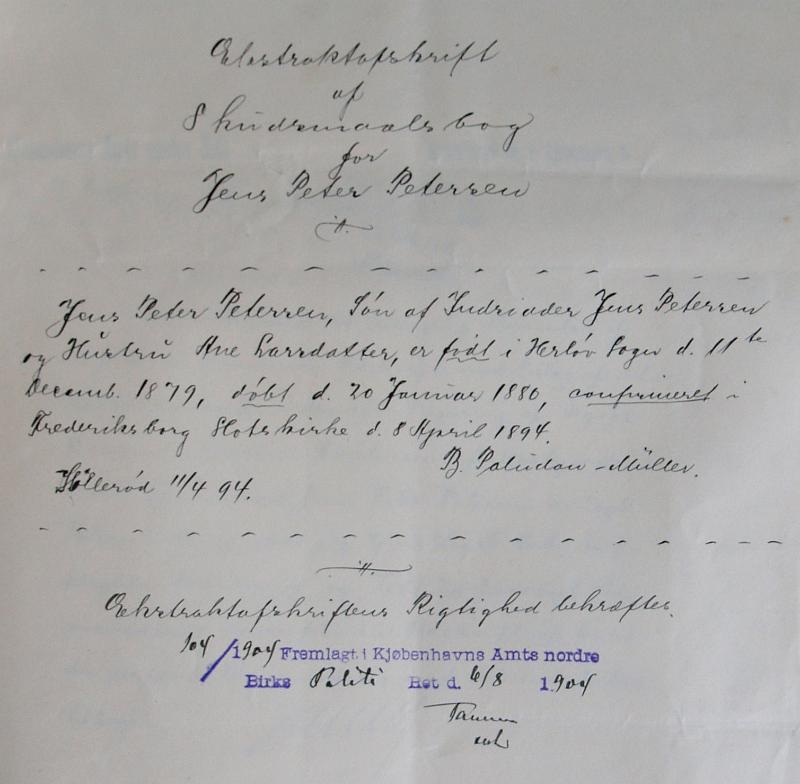 Ekstraktafskrift
af
Skudsmaalsbog
for
Jens Peter Petersen
Jens Peter Petersen, Søn af Indsider Jens Petersen
og Hustru Ane Larsdatter, er født i Herløv Sogn d. 11te
Decemb. 1879, døbt d. 20 Januar 1880, confirmeret i
Frederiksborg Slotskirke d. 8 April 1894.
B. Paludan-Müller.
Hillerød 11/4 94.
Ekstraktafskriftens Rigtighed bekræftes.
104/1904 Fremlagt i Kjøbenhavns Amts nordre
Birks Politi Ret d. 6/8 1904